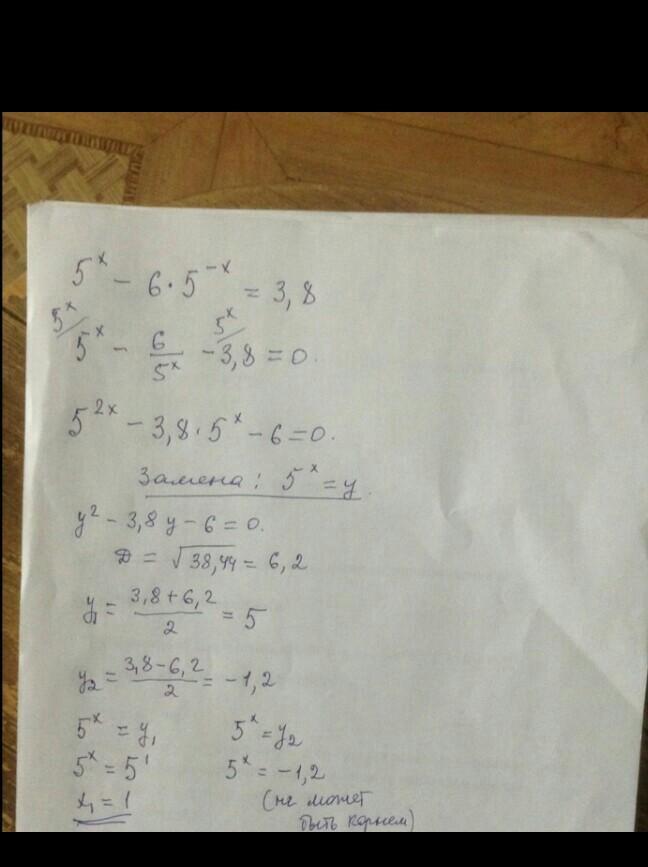 5^x − 6·5^(−x) = 3,8
5^x/ 5^x − 6/5^x − 5^x/ 3,8 = 0.
5^(2x) − 3,8·5^x − 6 = 0.
Замена: 5^x = y.
y² − 3,8y − 6 = 0.
D = √38,44 = 6,2
y₁ = (3,8+6,2)/2 = 5
y₂ = (3,8−6,2)/2 = −1,2
5^x = y₁ 5^x = y₂
5^x = 5^1 5^x = −1,2
x₁ = 1 (не может
быть корнем)